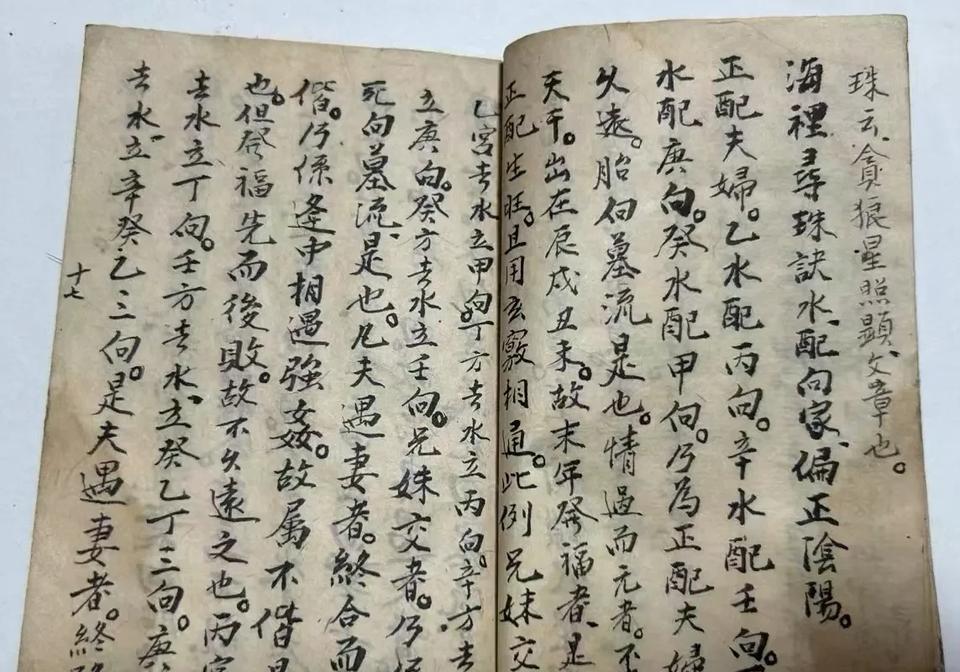 珠云、貪狼星照顯文章也。
海裡尋珠訣水、配向家、偏正陰陽。
正配夫婦。乙水配丙向。辛水配壬向。
水配庚向。癸水配甲向。乃為正配夫婦
久遠。胎向墓流是也。情過而亢者。不
天干。出在辰戌丑未。故末年發福者、是
正配生旺。且用玄竅相通。此例兄妹交
乙宮去水立甲向。丁方去水立丙向。辛方去
立庚向。癸方去水立壬向。兄妹交者。乃係
死向墓流、是也。凡夫遇妻者。終合而
偕。乃係逢中相遇強姦。故属不偕
也。但發福先而後敗。故不久遠之也。丙宮
去水立丁向。壬方去水、立癸乙丁三向。庚
去水、立辛癸乙三向。是夫遇妻者。終
十七